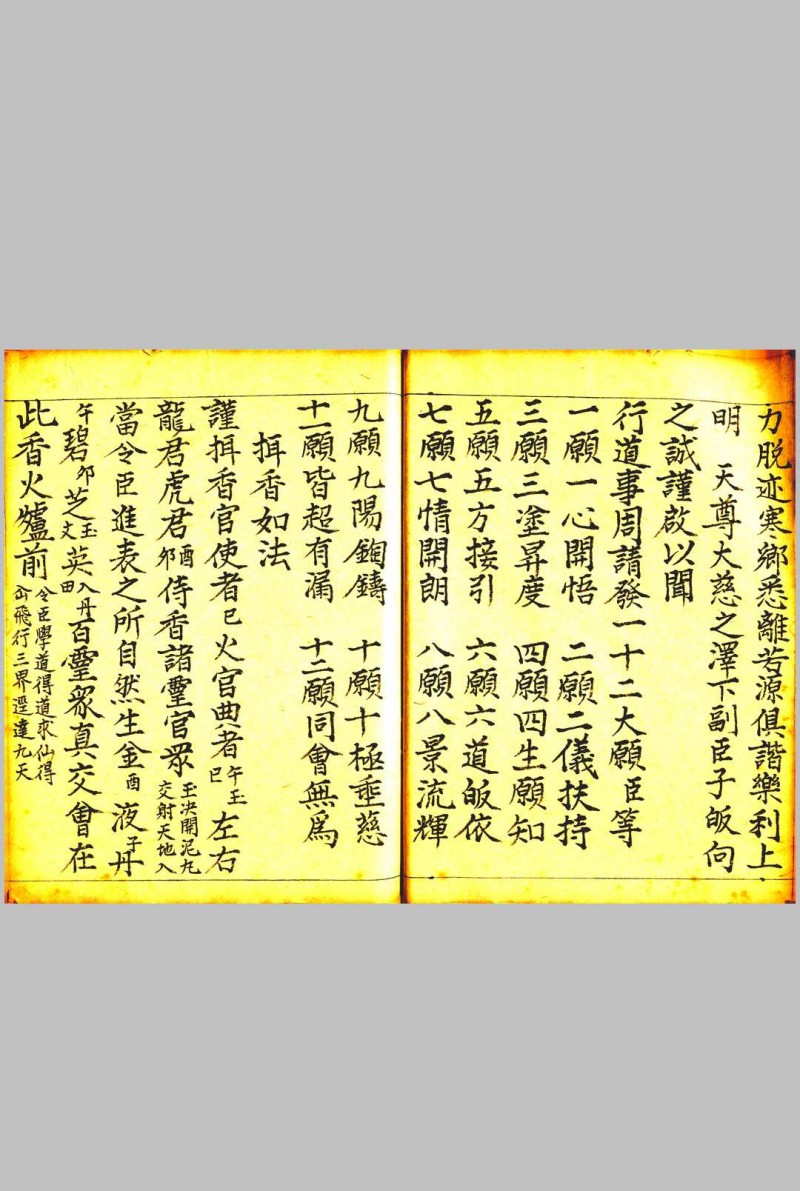 力脫迹寒鄉悉離苦源俱諧樂利上
明　天尊大慈之澤下副臣子皈向
之誠謹啟以聞
行道事周請發一十二大願臣等
一願一心開悟　二願二儀扶持
三願三塗昇度　四願四生願知
五願五方接引　六願六道皈依
七願七情開朗　八願八景流輝
九願九陽鋾鑄　十願十極垂慈
十一願皆超有漏　十二願同會無為
揖香如法
謹揖香官使者巳火官典者午玉巳左右
龍君虎君酉卯侍香諸靈官眾玉決開泥丸交射天地入
當令臣進表之所自然生金酉液子丹
午碧卯芝玉文英入丹田百靈眾真交會在
此香火爐前令臣學道得道求仙得仚飛行三界逕達九天